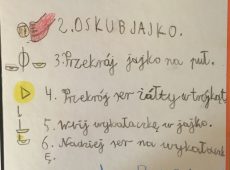 2. OSKUB JAJKO.
3. Przekrój jajko na puł.
4. Przekrój ser żółty w trójkąt
5. Wbij wykałaczkę w jajko.
6. Nadziej ser na wykałaczk
Ę.